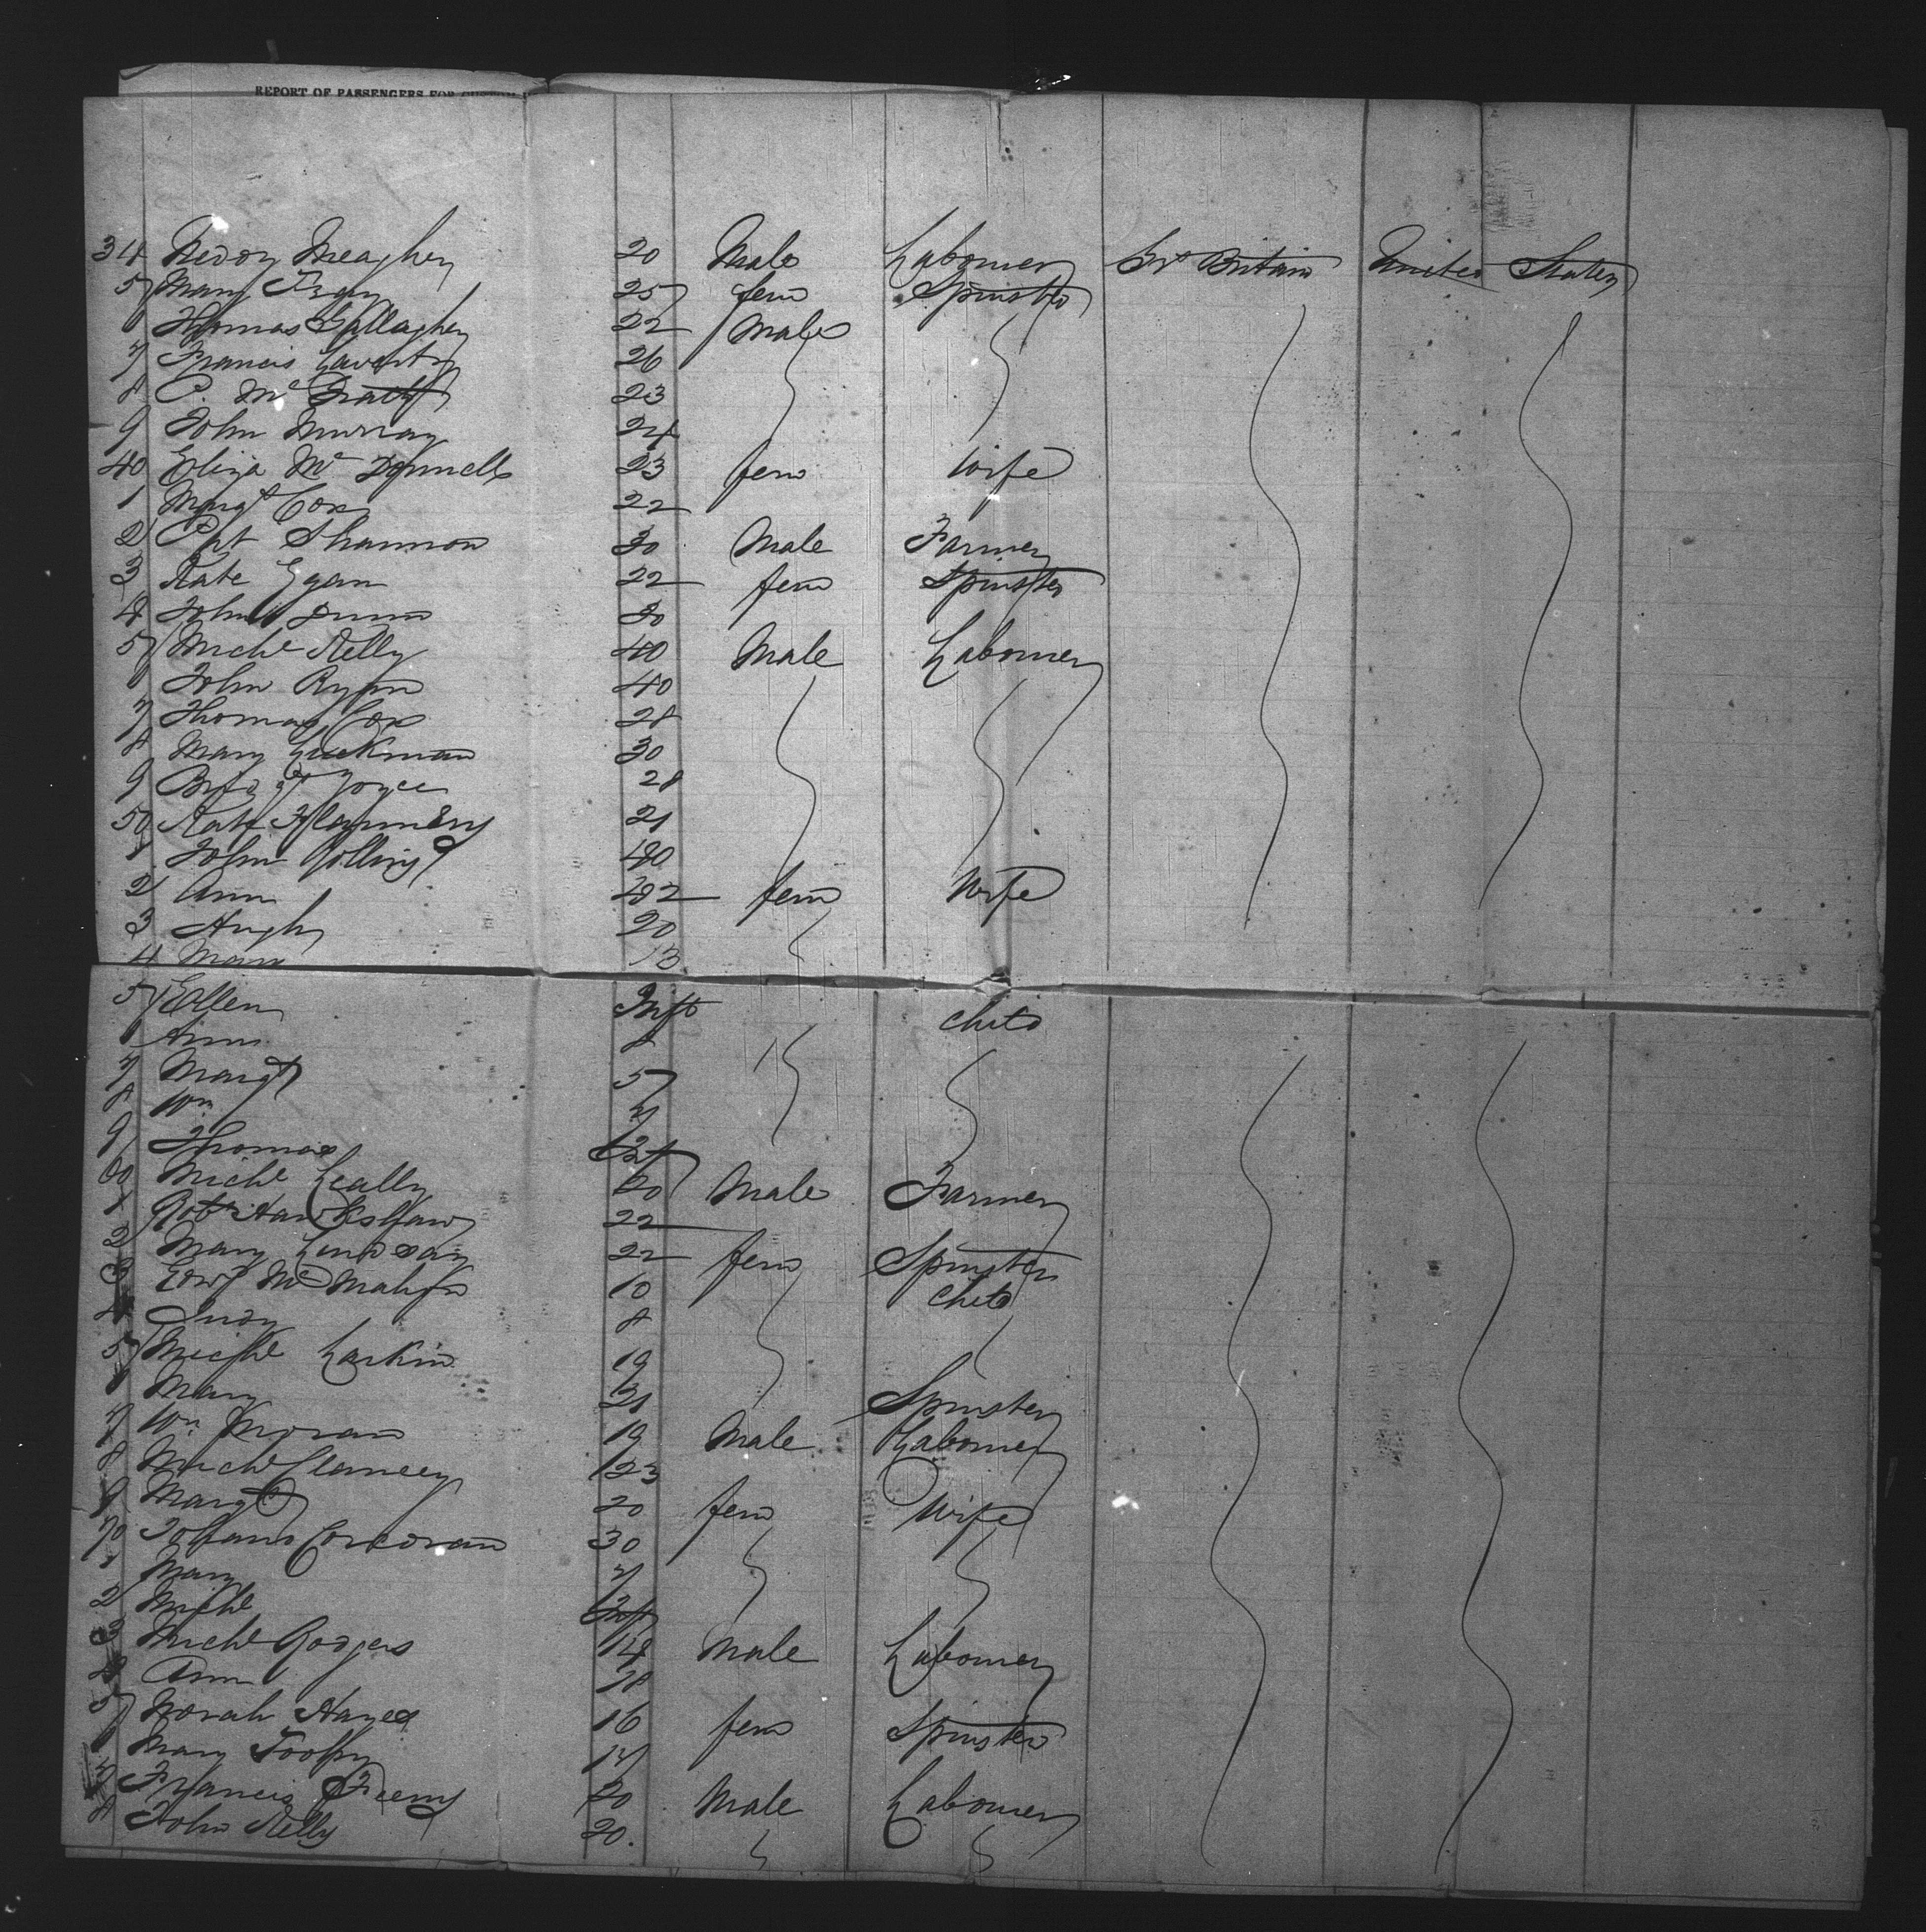 REPORT OF PASSENGERS FOR CUSTOM
34 Meagher 20 Male Labourer Gt Britain United States
5 Mary 25 fem Spinster
6 Thomas Gallagher 22 Male
7 Francis Laverty 26
8 P. McGrath 23
9 John Murray 24
40 Eliza McDonnell 23 fem Wife
1 Margt Cox 22
2 Pat Shannon 30 Male Farmer
3 Kate Egan 22 fem Spinster
4 John Dunn 30
5 Michl Kelly 40 Male Labourer
6 John Ryan 40
7 Thomas Cox 28
8 Mary Luckman 30
9 Bridgt Joyce 28
50 Kate Flannery 21
1 John Collins 40
2 Ann 42 fem Wife
3 Hugh 20
4 Mary 13
5 Ellen Inft Child
6 Ann 8
7 Margt 5
8 Wm 7
9 Thomas Inft
60 Michl Leally 60 Male Farmer
1 Robt Hawkshaw 22
2 Mary Lindsay 22 fem Spinster
3 Edwd McMahon 10 Child
4 Judy 8
5 Michl Larkin 19
6 Mary 21 Spinster
7 Wm Moran 19 Male Labourer
8 Michl Clancey 23
9 Margt 20 fem Wife
70 Corcoran 30
1 Mary 7
2 Michl Inft
3 Michl Rodgers 14 Male Labourer
4 Ann 18
5 Norah Hayes 16 fem Spinster
6 Mary 17
7 Francis Feeny 20 Male Labourer
8 John Kelly 20.